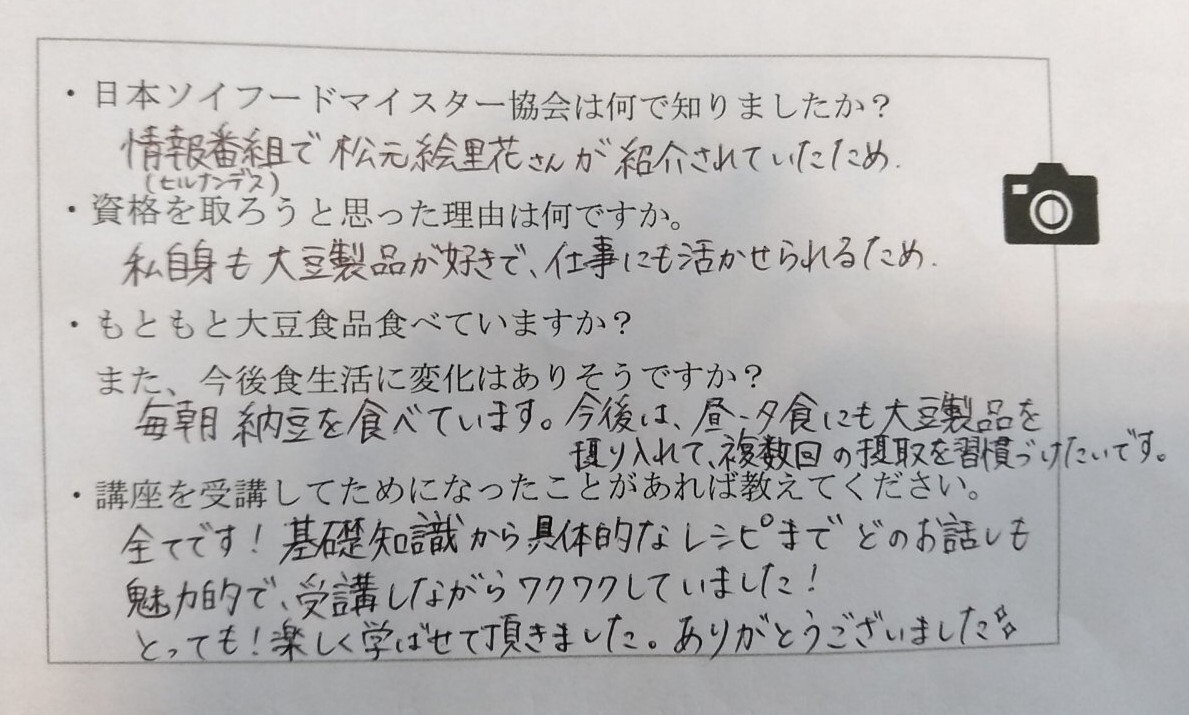 ・日本ソイフードマイスター協会は何で知りましたか？
情報番組で松元絵里花さんが紹介されていたため.
(ヒルナンデス)
・資格を取ろうと思った理由は何ですか。
私自身も大豆製品が好きで、仕事にも活かせられるため.
・もともと大豆食品食べていますか？
また、今後食生活に変化はありそうですか？
毎朝納豆を食べています。今後は、昼・夕食にも大豆製品を
摂り入れて、複数回の摂取を習慣づけたいです。
・講座を受講してためになったことがあれば教えてください。
全てです！基礎知識から具体的なレシピまでどのお話しも
魅力的で、受講しながらワクワクしていました！
とっても！楽しく学ばせて頂きました。ありがとうございました✨